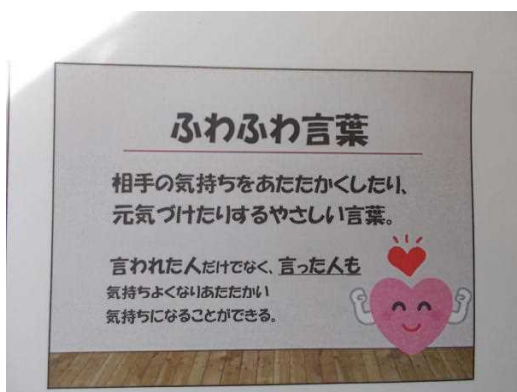 ふわふわ言葉
相手の気持ちをあたたかくしたり、
元気づけたりするやさしい言葉。
言われた人だけでなく、言った人も
気持ちよくなりあたたかい
気持ちになることができる。